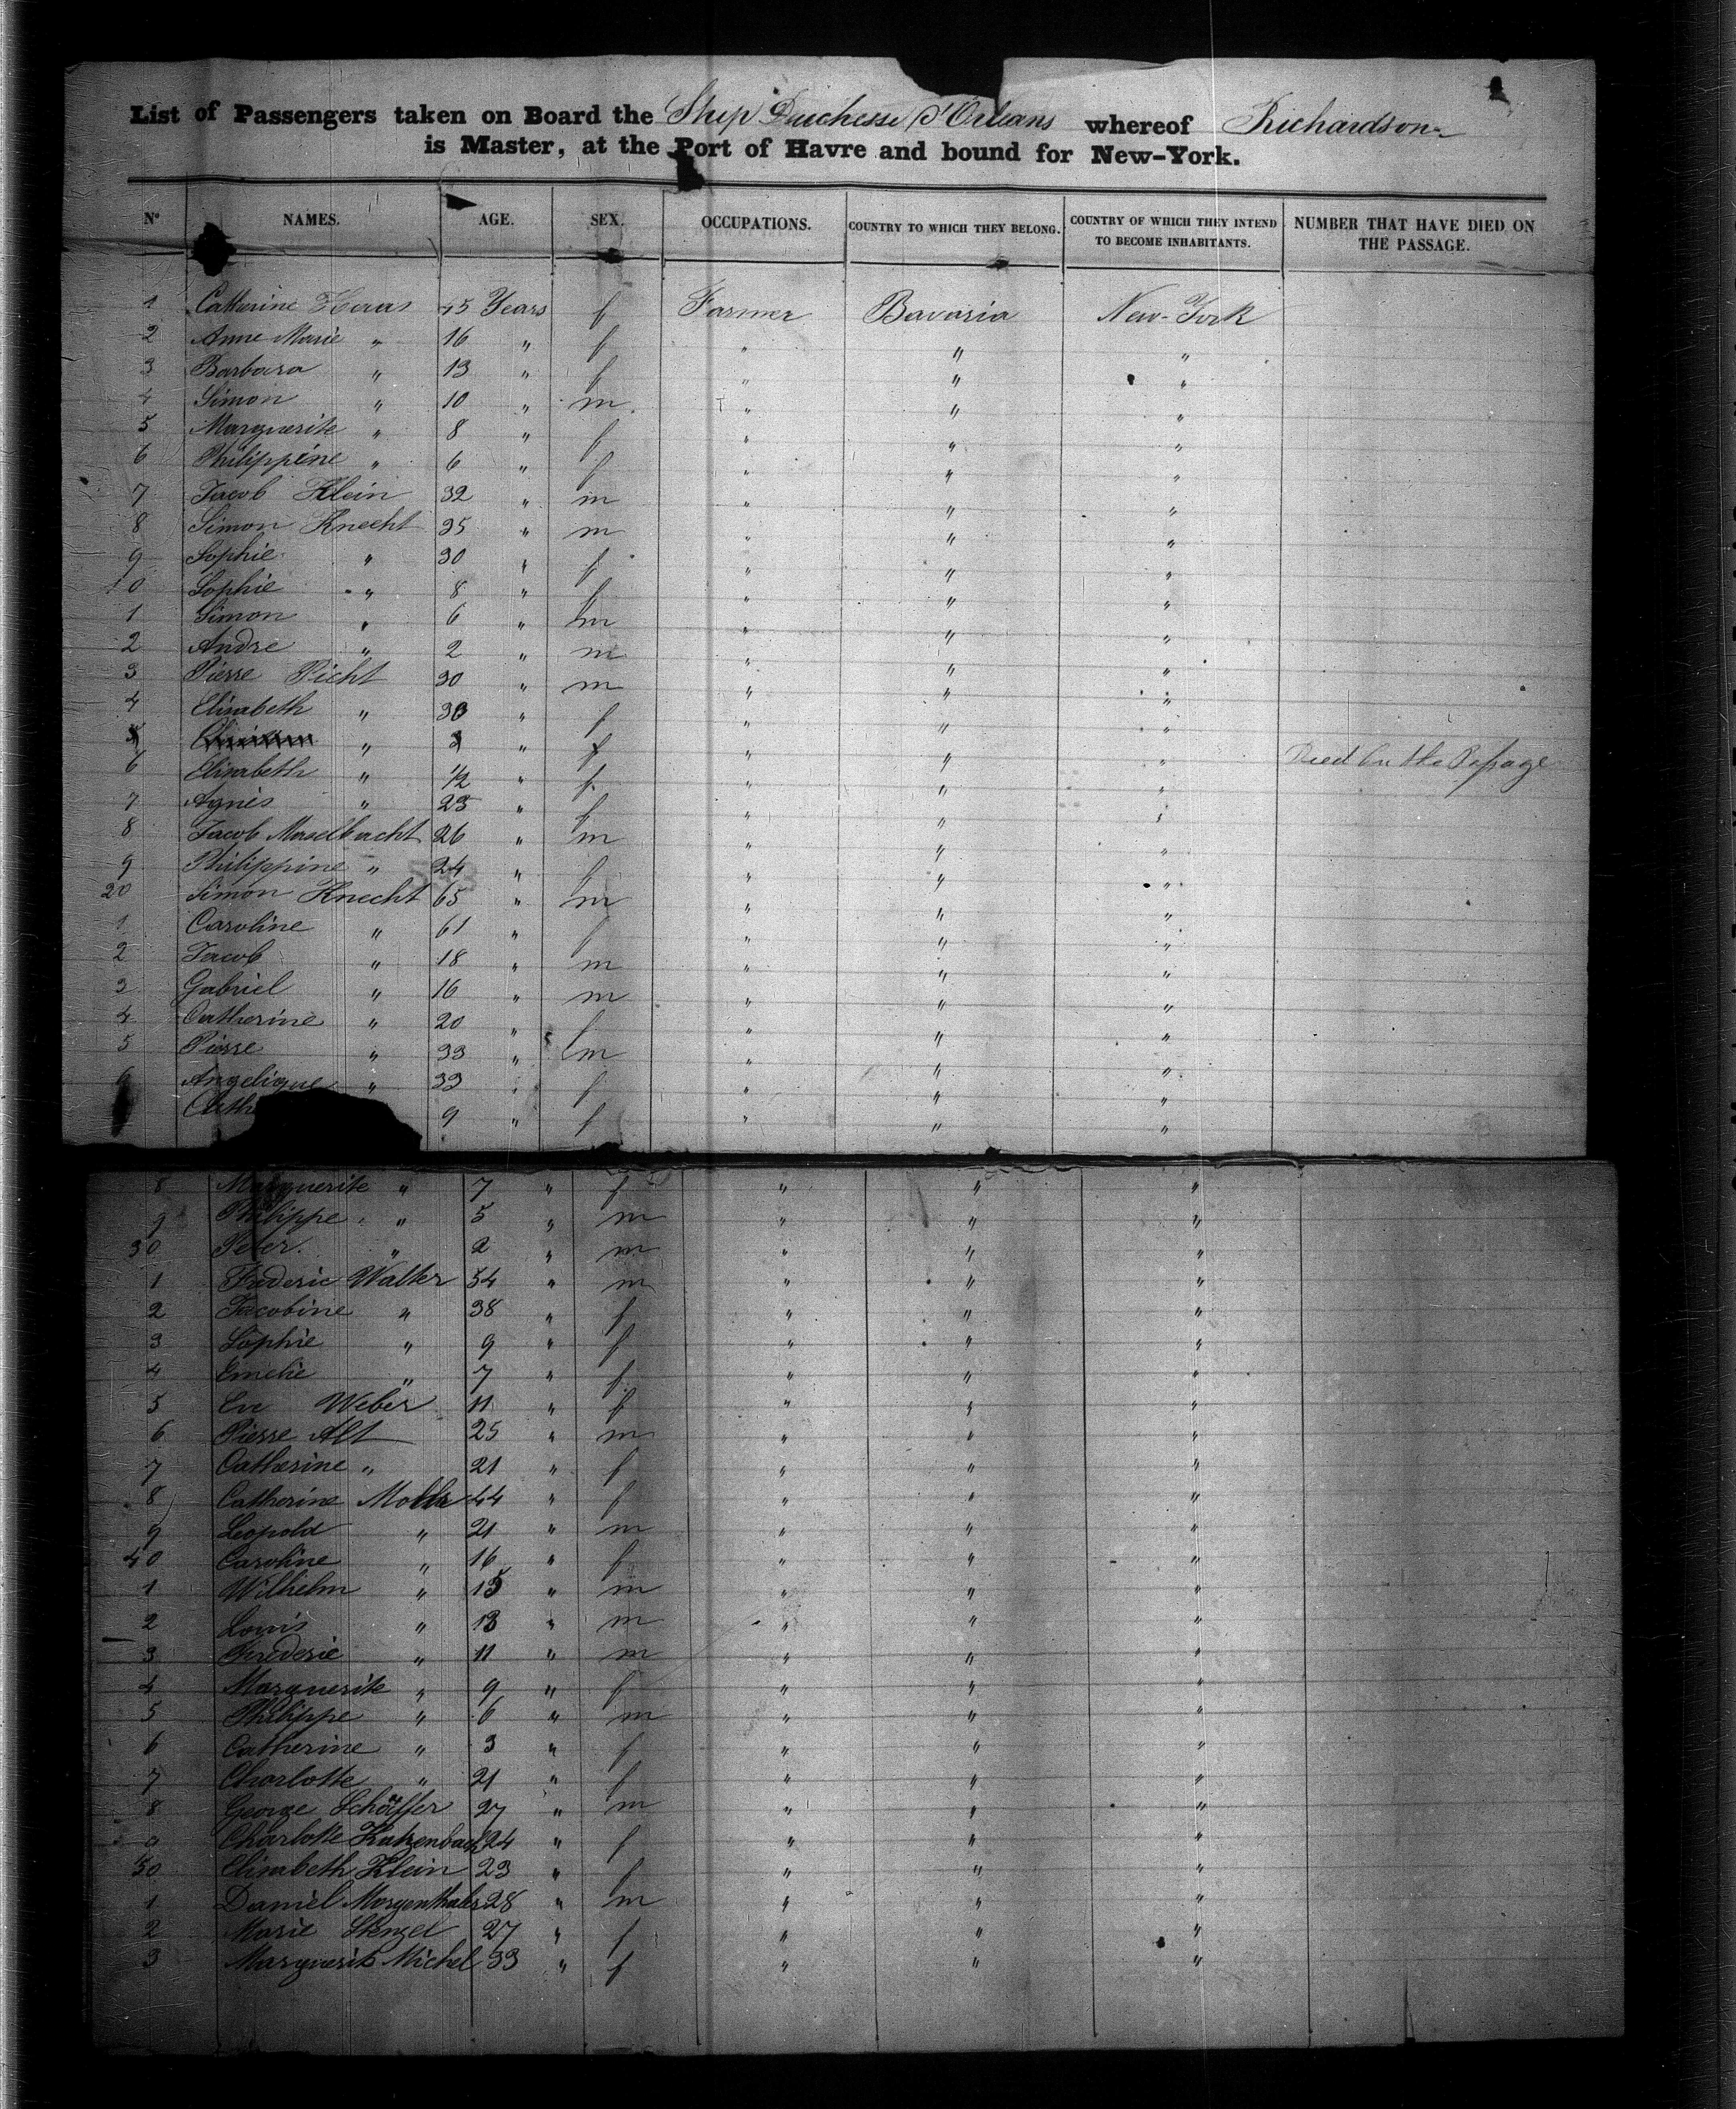 List of Passengers taken on Board the Ship Duchesse d'Orleans whereof Richardson
is Master, at the Port of Havre and bound for New-York.
N° NAMES. AGE. SEX. OCCUPATIONS. COUNTRY TO WHICH THEY BELONG. COUNTRY OF WHICH THEY INTEND TO BECOME INHABITANTS. NUMBER THAT HAVE DIED ON THE PASSAGE.
1 Catherine Haas 45 Years f Farmer Bavaria New-York
2 Anne Marie " 16 " f " " "
3 Barbara " 13 " f " " "
4 Simon " 10 " m " " "
5 Marguerite " 8 " f " " "
6 Philippine " 6 " f " " "
7 Jacob Klein 32 " m " " "
8 Simon Knecht 35 " m " " "
9 Sophie " 30 " f " " "
10 Sophie " 8 " f " " "
1 Simon " 6 " m " " "
2 Andre " 2 " m " " "
3 Pierre Picht 30 " m " " "
4 Elisabeth " 30 " f " " "
5 " 3 " f " " " Died On the Passage
6 Elisabeth " 1/2 " f " " "
7 Agnes " 23 " f " " "
8 Jacob 26 " m " " "
9 Philippine " 24 " f " " "
20 Simon Knecht 65 " m " " "
1 Caroline " 61 " f " " "
2 Jacob " 18 " m " " "
3 Gabriel " 16 " m " " "
4 Catherine " 20 " f " " "
5 Pierre " 33 " m " " "
6 Angelique " 33 " f " " "
Cath 9 " f " " "
8 Marguerite " 7 " f " " "
9 Philippe " 5 " m " " "
30 Peter " 2 " m " " "
1 Frederic Walter 54 " m " " "
2 Jacobine " 38 " f " " "
3 Sophie " 9 " f " " "
4 Emelie " 7 " f " " "
5 Eve Weber 11 " f " " "
6 Pierre Alt 25 " m " " "
7 Catherine " 21 " f " " "
8 Catherine 44 " f " " "
9 Leopold " 21 " m " " "
40 Caroline " 16 " f " " "
1 Wilhelm " 15 " m " " "
2 Louis " 13 " m " " "
3 Frederic " 11 " m " " "
4 Marguerite " 9 " f " " "
5 Philippe " 6 " m " " "
6 Catherine " 3 " f " " "
7 Charlotte " 21 " f " " "
8 George Schäffer 27 " m " " "
9 Charlotte Katzenbach 24 " f " " "
50 Elisabeth Klein 23 " f " " "
1 Daniel Morgenthaler 28 " m " " "
2 Marie Stengel 27 " f " " "
3 Marguerite Michel 33 " f " " "